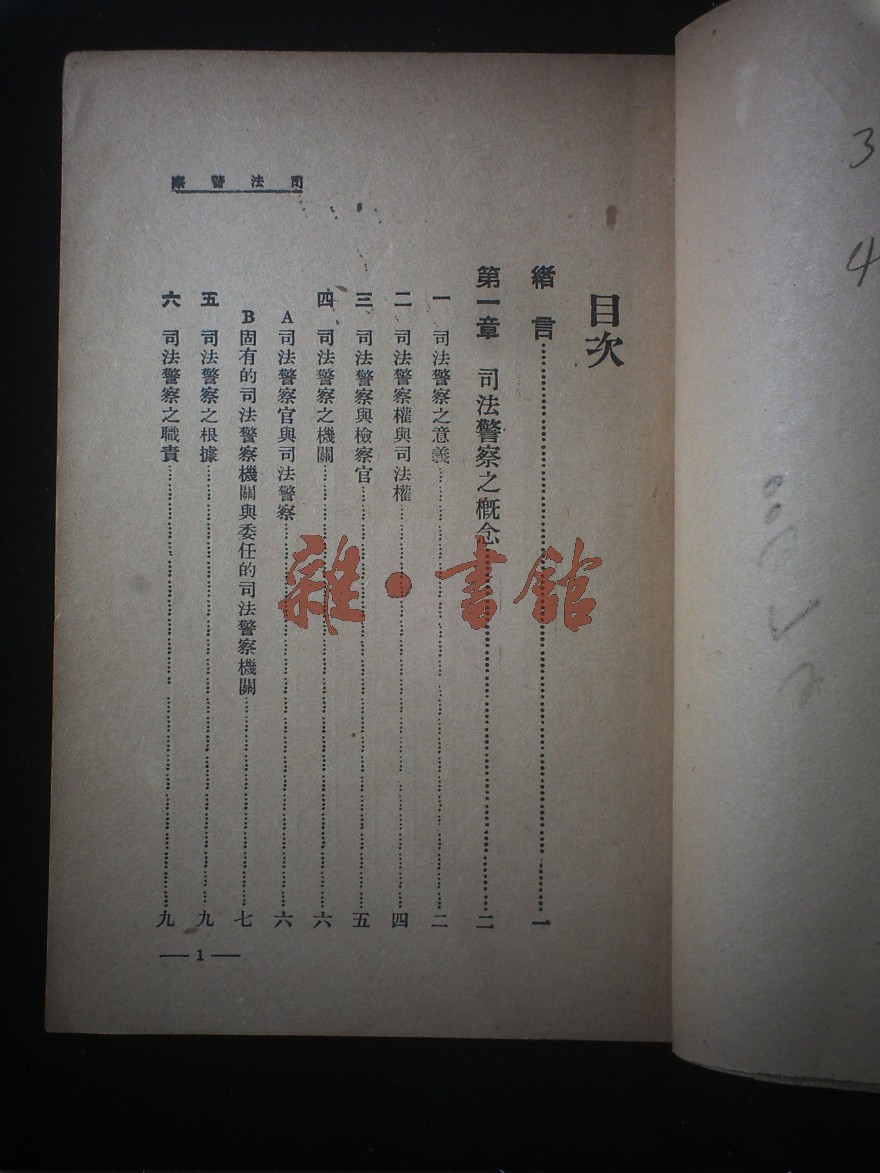 司法警察
目次
緒言……一
第一章 司法警察之概念……二
一 司法警察之意義……二
二 司法警察權與司法權……四
三 司法警察與檢察官……五
四 司法警察之機關……六
A 司法警察官與司法警察……六
B 固有的司法警察機關與委任的司法警察機關……七
五 司法警察之根據……九
六 司法警察之職責……九
— 1 —
雜·書館
3
4